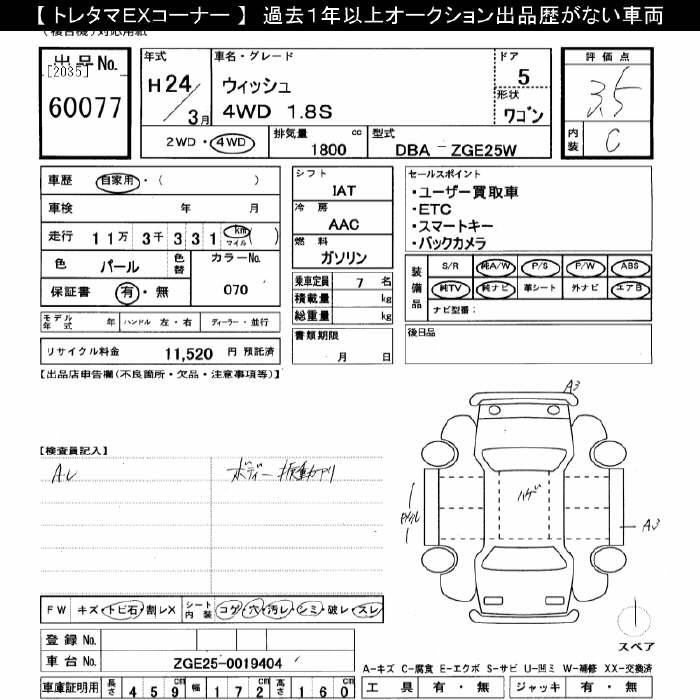 【 トレタマＥＸコーナー 】 過去１年以上オークション出品歴がない車両
出品No.
[2035]
60077
年式
H24/3月
車名・グレード
ウィッシュ
4WD 1.8S
ドア
5
形状
ワゴン
評価点
3.5
内装
C
2WD・4WD
排気量
1800 cc
型式
DBA − ZGE25W
車歴
自家用・( )
車検 年 月
走行 11万 3千 331 km マイル ( )
色
パール
色替
カラーNo.
070
保証書
有・無
モデル年式 年
ハンドル 左・右
ディーラー・並行
リサイクル料金 11,520 円 預託済
シフト
IAT
冷房
AAC
燃料
ガソリン
乗車定員 7 名
積載量 kg
総重量 kg
書類期限
月 日
セールスポイント
・ユーザー買取車
・ETC
・スマートキー
・バックカメラ
装備品
S/R 純A/W P/S P/W ABS
純TV 純ナビ 革シート 外ナビ エアB
ナビ型番：
後日品
【出品店申告欄(不良箇所・欠品・注意事項等)】
【検査員記入】
ボディー振動アリ
A3
ハゲ
A3
スペア
FW キズ・トビ石・割レX
シート内装 コゲ・穴・汚レ・シミ・破レ・スレ
登録 No.
車台 No. ZGE25-0019404
車庫証明用 長さ 459 cm 幅 172 cm 高さ 160 cm
A-キズ C-腐食 E-エクボ S-サビ U-凹ミ W-補修 XX-交換済
工具 有・無
ジャッキ 有・無